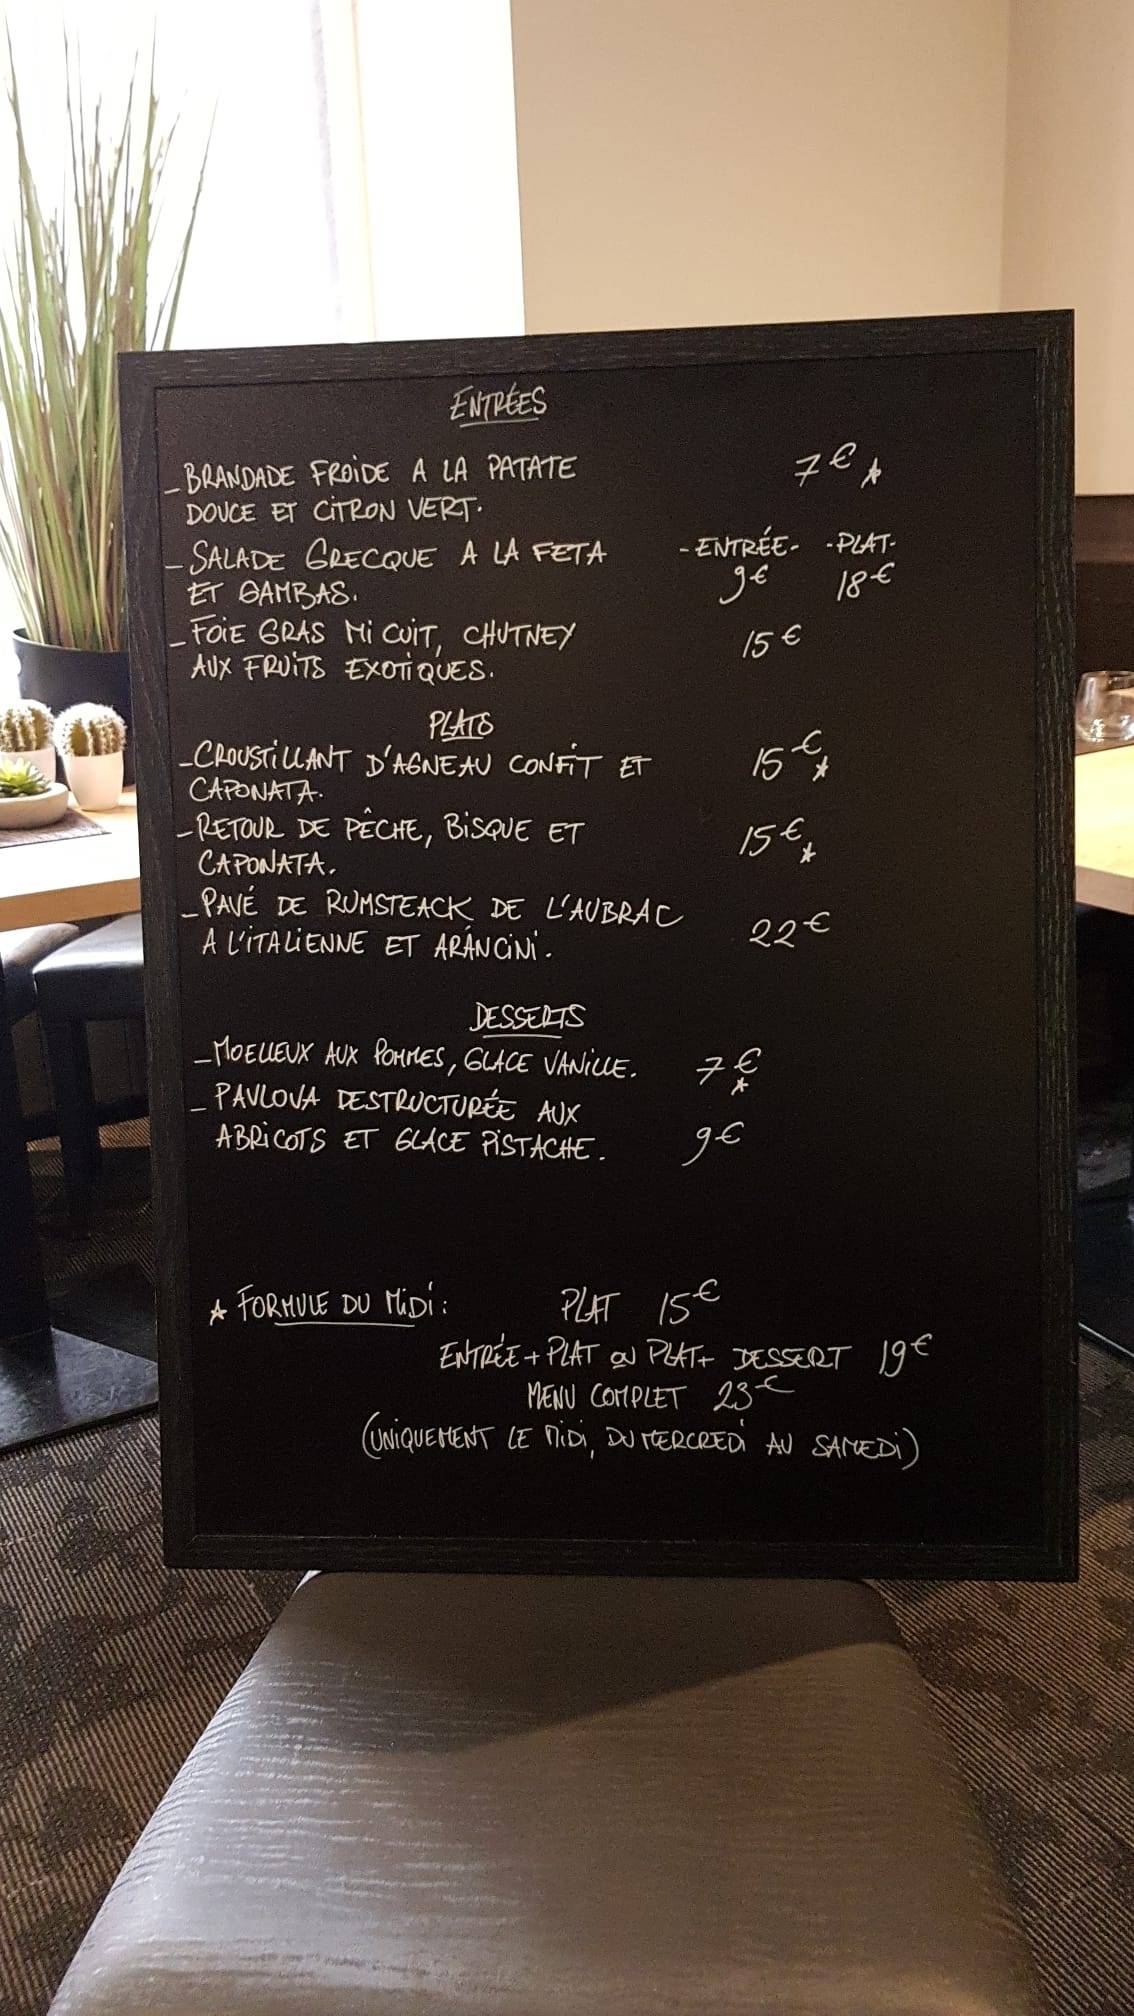 ENTRÉES
_ BRANDADE FROIDE A LA PATATE 7€ ☆
DOUCE ET CITRON VERT.
_ SALADE GRECQUE A LA FETA - ENTRÉE - - PLAT -
ET GAMBAS. 9€ 18€
_ FOIE GRAS MI CUIT, CHUTNEY 15€
AUX FRUITS EXOTIQUES.
PLATS
_ CROUSTILLANT D'AGNEAU CONFIT ET 15€ ☆
CAPONATA.
_ RETOUR DE PÊCHE, BISQUE ET 15€ ☆
CAPONATA.
_ PAVÉ DE RUMSTEACK DE L'AUBRAC 22€
A L'ITALIENNE ET ARANCINI.
DESSERTS
_ MOELLEUX AUX POMMES, GLACE VANILLE. 7€ ☆
_ PAVLOVA DESTRUCTURÉE AUX
ABRICOTS ET GLACE PISTACHE. 9€
☆ FORMULE DU MIDI : PLAT 15€
ENTRÉE + PLAT OU PLAT + DESSERT 19€
MENU COMPLET 23€
(UNIQUEMENT LE MIDI, DU MERCREDI AU SAMEDI)